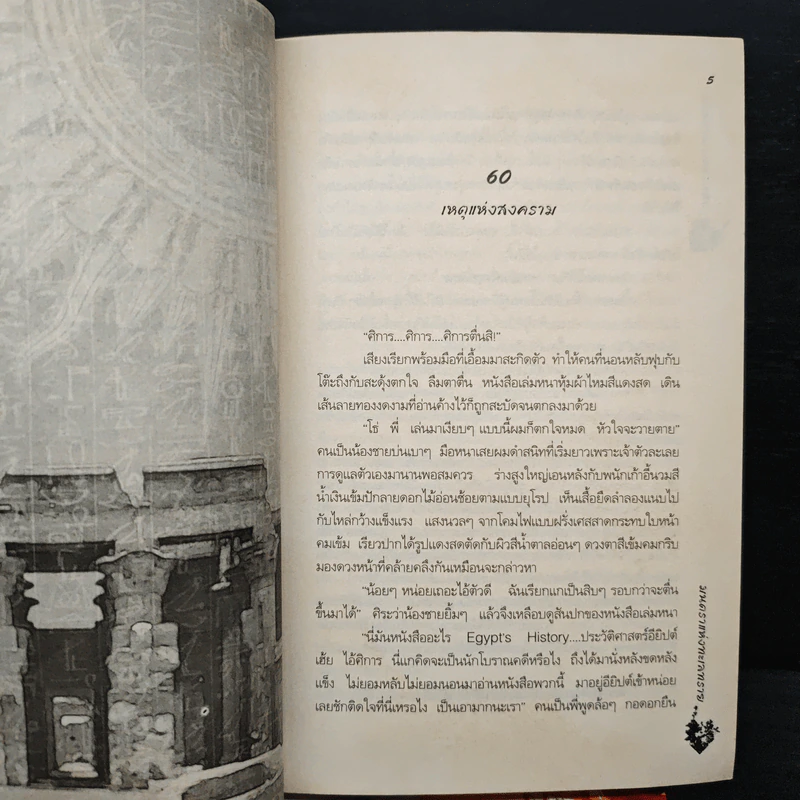 5
60
เหตุแห่งสงคราม
"ศิการ....ศิการ....ศิการตื่นสิ!"
เสียงเรียกพร้อมมือที่เอื้อมมาสะกิดตัว ทำให้คนที่นอนหลับฟุบกับ
โต๊ะถึงกับสะดุ้งตกใจ ลืมตาตื่น หนังสือเล่มหนาหุ้มผ้าไหมสีแดงสด เดิน
เส้นลายทองงดงามที่อ่านค้างไว้ก็ถูกสะบัดจนตกลงมาด้วย
"โธ่ พี่ เล่นมาเงียบๆ แบบนี้ผมก็ตกใจหมด หัวใจจะวายตาย"
คนเป็นน้องชายบ่นเบาๆ มือหนาเสยผมดำสนิทที่เริ่มยาวเพราะเจ้าตัวละเลย
การดูแลตัวเองมานานพอสมควร ร่างสูงใหญ่เอนหลังกับพนักเก้าอี้นวมสี
น้ำเงินเข้มปักลายดอกไม้อ่อนช้อยตามแบบยุโรป เห็นเสื้อยืดลำลองแนบไป
กับไหล่กว้างแข็งแรง แสงนวลๆ จากโคมไฟแบบฝรั่งเศสสาดกระทบใบหน้า
คมเข้ม เรียวปากได้รูปแดงสดตัดกับผิวสีน้ำตาลอ่อนๆ ดวงตาสีเข้มคมกริบ
มองดวงหน้าที่คล้ายคลึงกันเหมือนจะกล่าวหา
"น้อยๆ หน่อยเถอะไอ้ตัวดี ฉันเรียกแกเป็นสิบๆ รอบกว่าจะตื่น
ขึ้นมาได้" ศิระว่าน้องชายยิ้มๆ แล้วจึงเหลือบดูสันปกของหนังสือเล่มหนา
"นี่มันหนังสืออะไร Egypt's History....ประวัติศาสตร์อียิปต์
เฮ้ย ไอ้ศิการ นี่แกคิดจะเป็นนักโบราณคดีหรือไง ถึงได้มานั่งหลังขดหลัง
แข็ง ไม่ยอมหลับไม่ยอมนอนมาอ่านหนังสือพวกนี้ มาอยู่อียิปต์เข้าหน่อย
เลยชักติดใจที่นี่เหรอไง เป็นเอามากนะเรา" คนเป็นพี่พูดล้อๆ กอดอกยืน
มนตราแห่งทะเลทราย